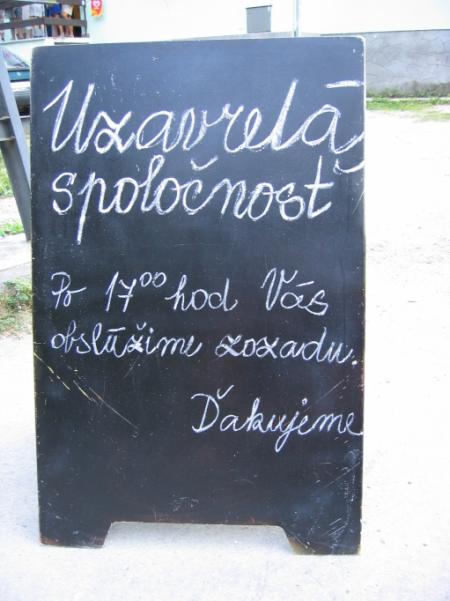 Uzavretá
spoločnosť
Po 17⁰⁰ hod Vás
obslúžime zozadu.
Ďakujeme